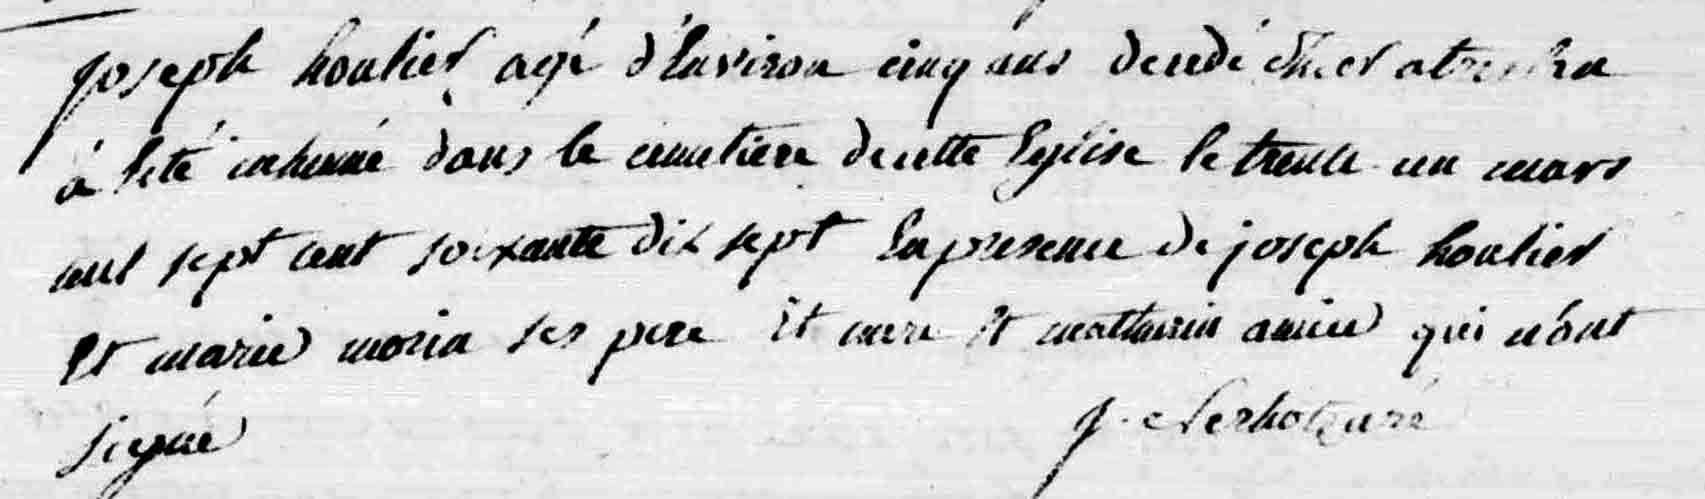 joseph houlier agé d'Environ cinq ans decedé hier
à Eté inhumé dans le cimetiere de cette Eglise le trente un mars
mil sept cent soixante dix sept En presence de joseph houlier
Et marie morin ses pere Et mere Et mathurin qui n'ont
signé